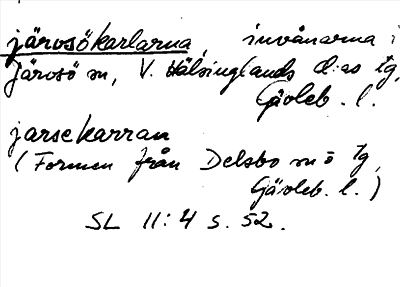 järvsökarlarna, invånarna i
Järvsö sn, V. Hälsinglands d:as tg,
Gävleb. l.
jarsekarran
(Formen från Delsbo sn ö tg,
Gävleb. l.)
SL 11:4 s. 52.